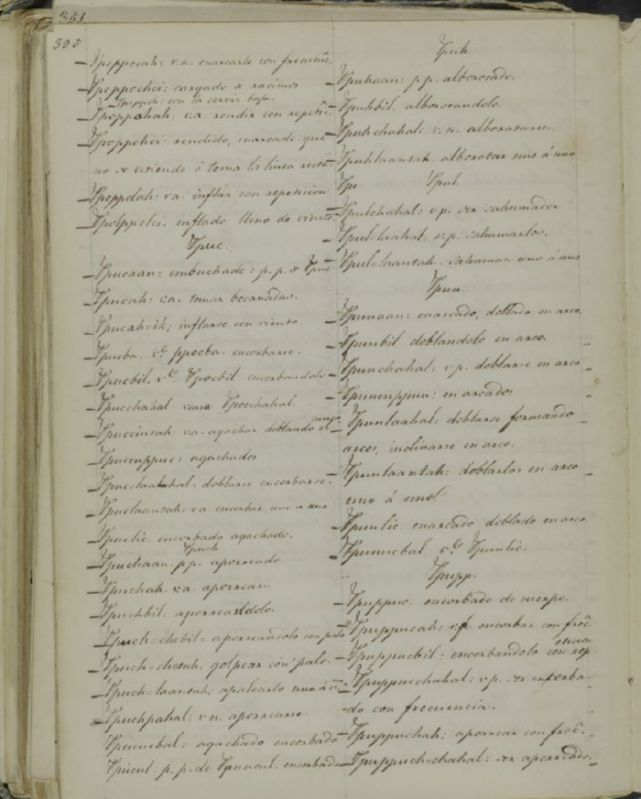 351
393
Ppoppocah: v.a. enarcarlo con frecuenc.
Ppoppochci: cargado a racimos
Ppoppoh: con la cerviz baja.
Ppoppohah: v.a. rendir con repetic.
Ppoppohci: rendido, enarcado que
no se estiende ó toma la linea recta.
Ppoppolah: v.a. inflar con repeticion
Ppolppolci. inflado lleno de viento.
Ppuc.
Ppucaan: embuchado: p.p. de Ppuc
Ppucah: v.a. tomar bocanadas.
Ppucah-ik; inflarse con viento.
Ppucba. ppocba. encorbarse.
Ppucbil. Ppocbil encorbandolo
Ppucchahal vease Ppocchahal.
Ppucinsah: v.a. agachar doblando el
cuerpo
Ppucenppuc: agachados
Ppuclaahal: doblarse encorbarse.
Ppuclaantah: v.a. encorbar uno a uno
Ppuclic encorbado agachado.
Ppuch
Ppuchaan. p.p. aporreado.
Ppuchah v.a. aporrear.
Ppuchbil: aporreandolo.
Ppuch-chebil: aporreandolo con palo
Ppuch-chetah. golpear con palo.
Ppuch-laantah. apalearlo uno á
Ppuchpahal: v.n. aporrearse
Ppucucbal: agachado encorbado
Ppucul. p.p. de encorbado
Ppuh.
Ppuhaan: p.p. alborozado.
Ppuhbil. alborozandolo.
Ppuhchahal: v.n. alborozarse.
Ppuhlaantah. alborotar uno á uno
Ppu Ppul.
Ppulchahal: v.p. ser sahumado
Ppul-laahal: v.p. sahumarlos.
Ppul-laantah. sahumar uno á uno
Ppum.
Ppumaan: enarcado, doblado en arco,
Ppumbil doblandolo en arco.
Ppumchahal: v.p. doblarse en arco
Ppumenppum: enarcados
Ppumlaahal: doblarse formando
arcos, inclinarse en arco.
Ppumlaantah: doblarlos en arco
uno á uno.
Ppumlic enarcado doblado en arco
Ppumucbal Ppumlic.
Ppupp.
Ppuppuc. encorbado de cuerpo.
Ppuppucah: v.a. encorbar con frec.
Ppuppucbil: encorbandolo con rep
eticion
Ppuppucchahal: v.p. ser encorba-
-do con frecuencia.
Ppuppuchah: aporrear con frec.
Ppuppuch-chahal: ser aporreado.